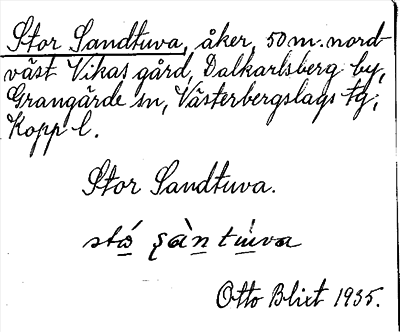 Stor Sandtuva, åker, 50 m. nord-
väst Vikas gård, Dalkarlsberg by,
Grangärde sn, Västerbergslags tg,
Kopp l.
Stor Sandtuva.
Otto Blixt 1935.